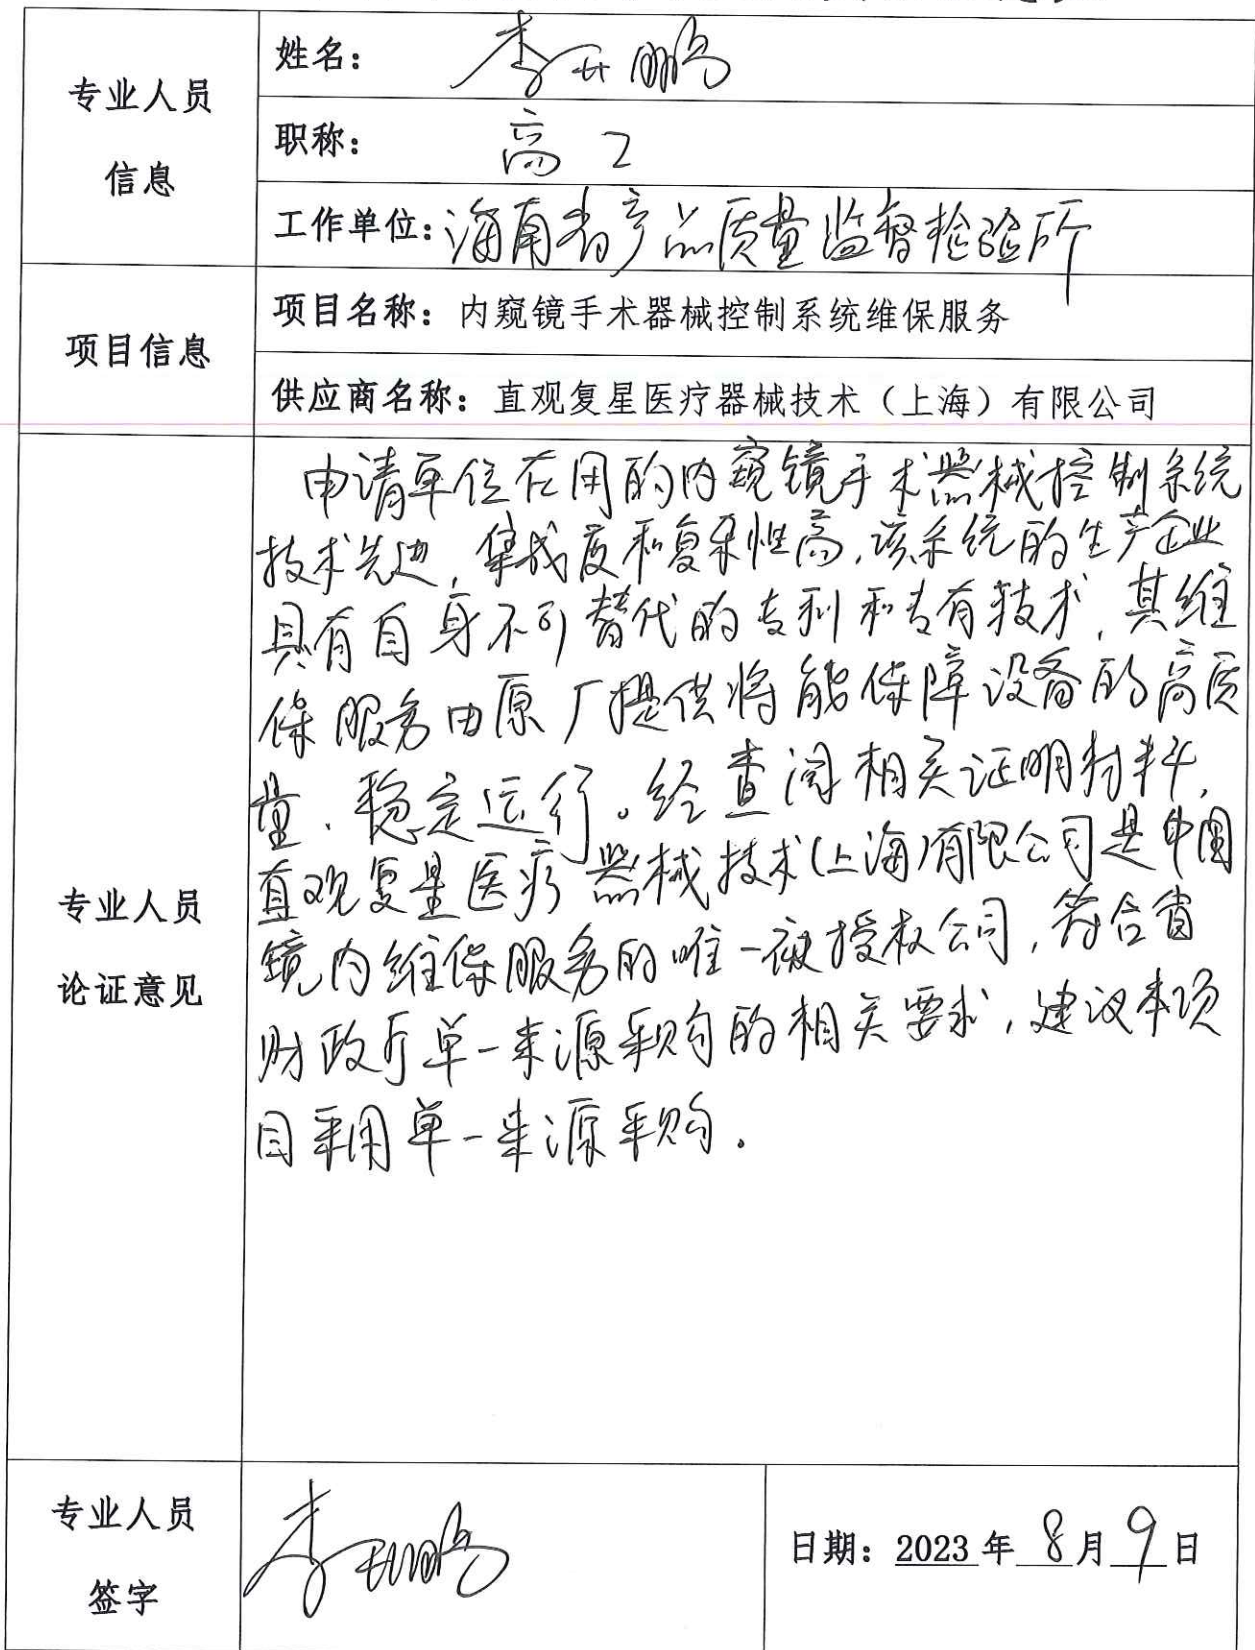 专业人员
信息
姓名：李开鹏
职称：高工
工作单位：海南省产品质量监督检验所
项目信息
项目名称：内窥镜手术器械控制系统维保服务
供应商名称：直观复星医疗器械技术（上海）有限公司
专业人员
论证意见
申请单位在用的内窥镜手术器械控制系统
技术先进，集成度和复杂性高，该系统的生产企业
具有自身不可替代的专利和专有技术，其维
保服务由原厂提供将能保障设备的高质
量、稳定运行。经查阅相关证明材料，
直观复星医疗器械技术(上海)有限公司是中国
镜内维保服务的唯一被授权公司，符合省
财政厅单一来源采购的相关要求，建议本项
目采用单一来源采购.
专业人员
签字
李开鹏
日期：2023年8月9日